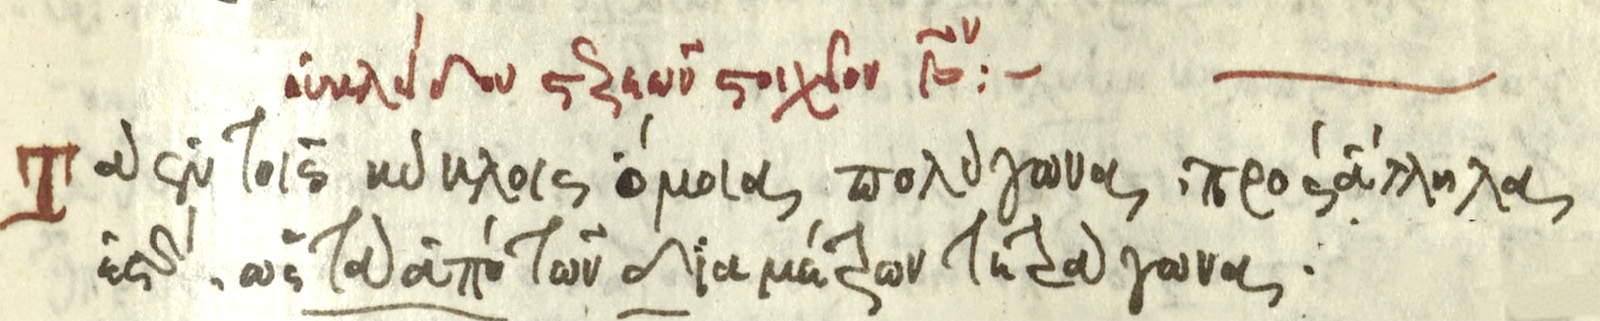 ἐυκλείδου στερεῶν στοιχείον ιβ ον :-
Τὰ ἐν τοῖς κύκλοις ὅμοια πολύγωνα, πρὸς ἄλληλα
ἐστὶν, ὡς τὰ ἀπὸ τῶν διαμέτρων τετράγωνα.